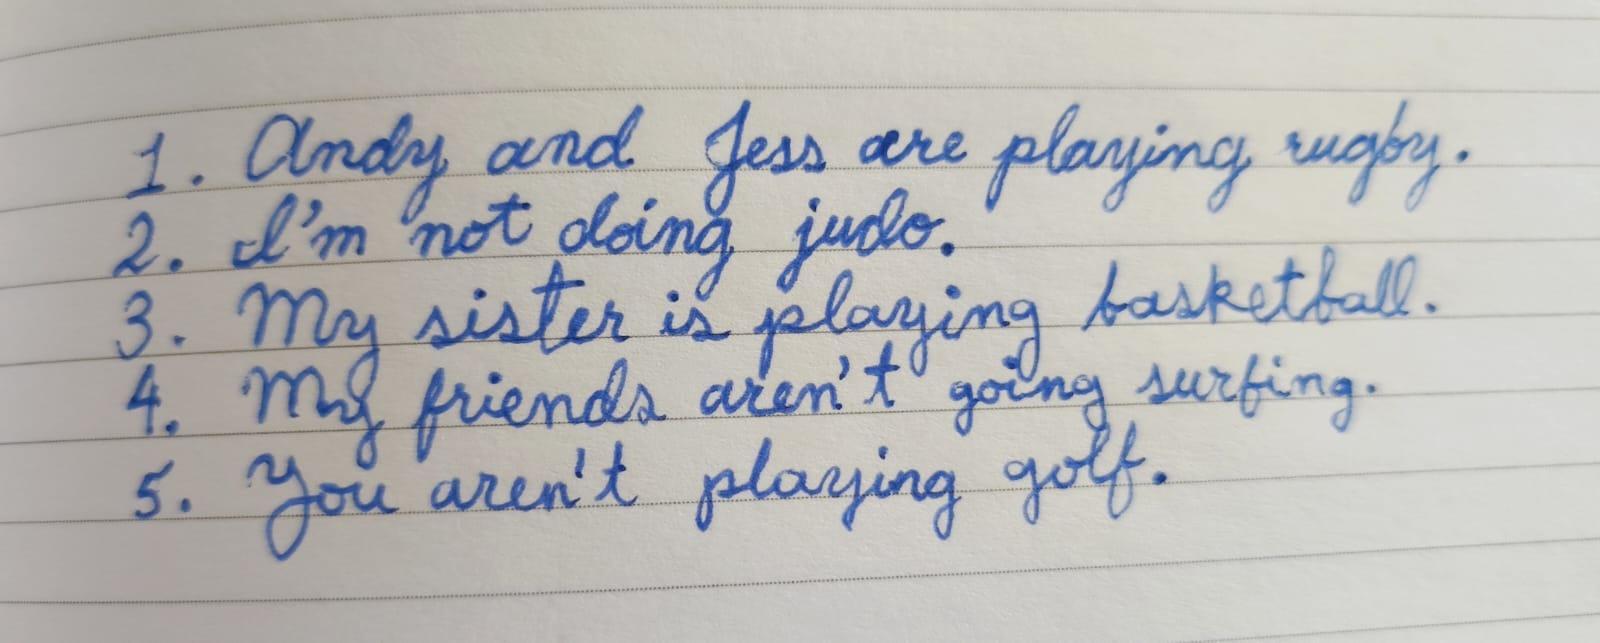 1. Andy and Jess are playing rugby.
2. I'm not doing judo.
3. My sister is playing basketball.
4. My friends aren't going surfing.
5. You aren't playing golf.